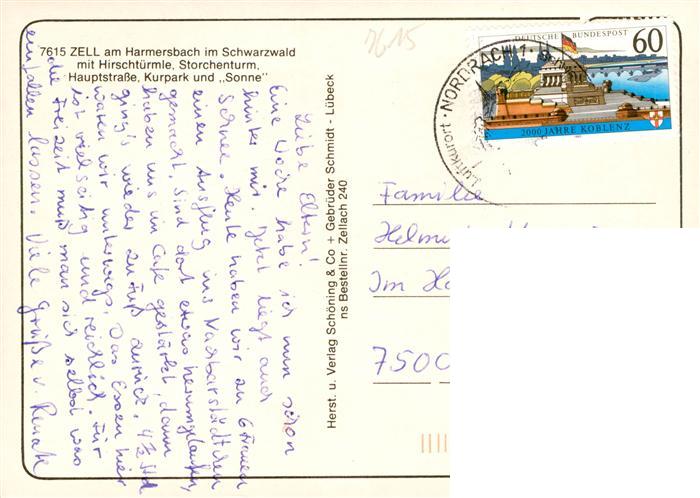 7615 ZELL am Harmersbach im Schwarzwald
mit Hirschtürmle, Storchenturm,
Hauptstraße, Kurpark und „Sonne"
7615
DEUTSCHE BUNDESPOST
60
2000 JAHRE KOBLENZ
NORDRACH 1
Luftkurort
Liebe Eltern!
Eine Woche habe ich nun schon
hinter mir. Jetzt liegt auch
Schnee. Heute haben wir zu 6 Frauen
einen Ausflug ins Nachbarstädtchen
gemacht. Sind dort etwas herumgelaufen,
haben uns im Café gestärkt, dann
ging's wieder zu Fuß zurück. 4½ Std
waren wir unterwegs. Das Essen hier
ist vielseitig und reichlich. Für
die Freizeit muß man sich selbst was
einfallen lassen. Viele Grüße v. Renate
Herst. u. Verlag Schöning & Co + Gebrüder Schmidt - Lübeck
ns Bestellnr. Zellach 240
Familie
Im
7500